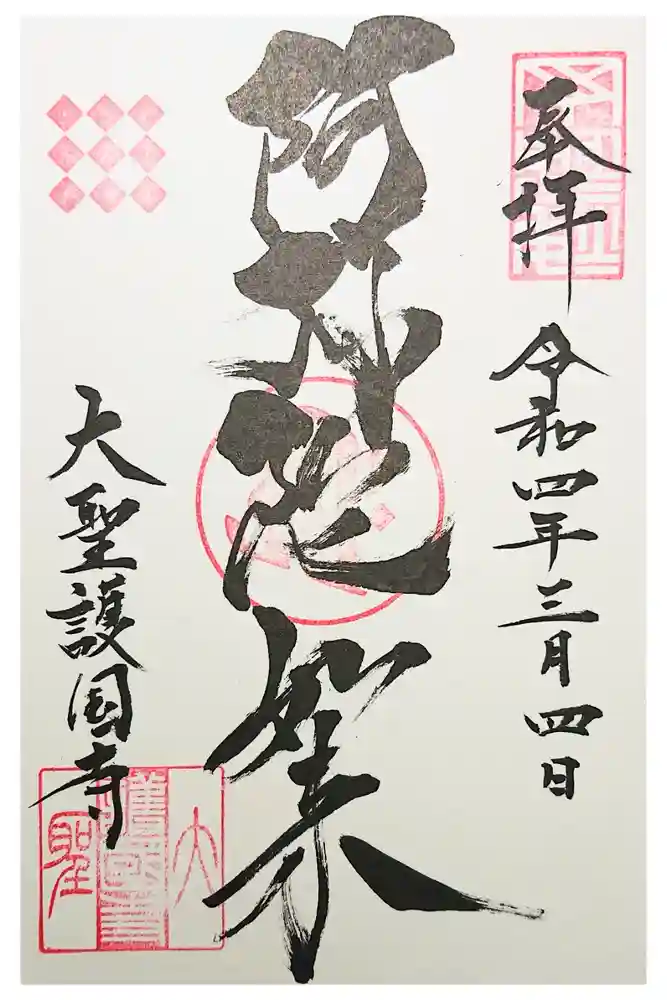 奉拝
令和四年三月四日
阿弥陀如来
大聖護国寺
大聖護國寺